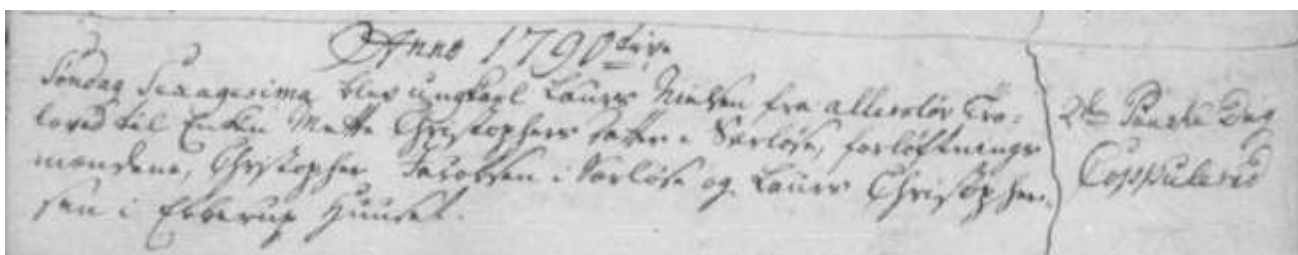 Anno 1790
Søndag Sexagesima blev ungkarl Laurs Nielsen fra Allersløv Tro-
loved til Enken Mette Christophers datter i Særløse, forløftnings
mændene, Christopher Jacobsen i Særløse og Laurs Christopher-
sen i Ebberup Huuset.
2den Paaske Dag
Coppulered